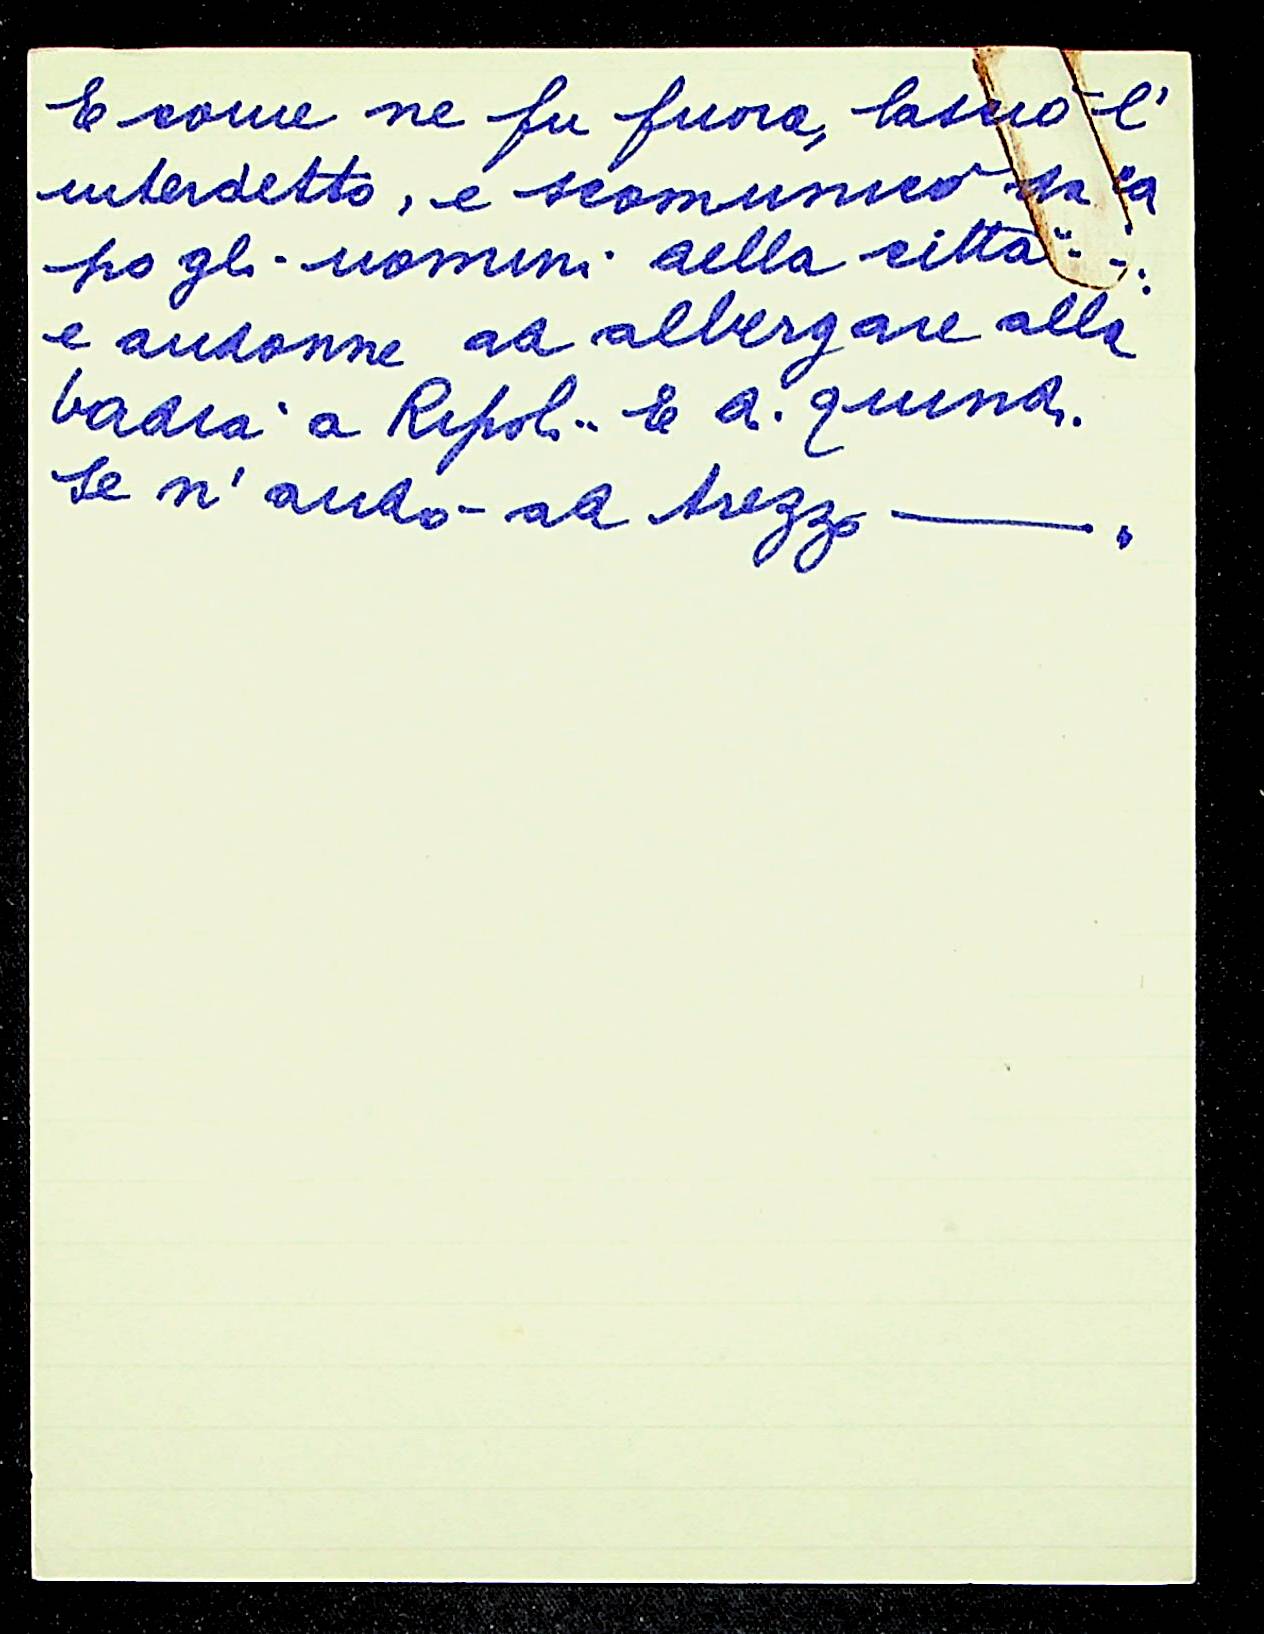 E come ne fu fuora, lasciò l'
interdetto, e scomunicò da ca
po gli uomini della città...
e andonne ad albergare alla
badia a Ripoli.. E di quindi
se n'andò ad Arezzo —.